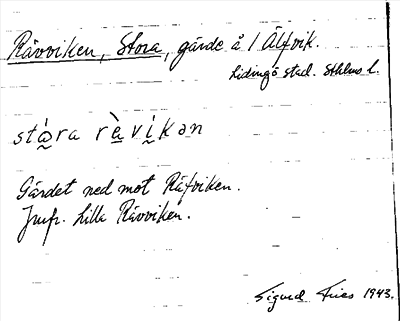 Rävviken, Stora, gärde å 1 Älfvik.
Lidingö stad. Sthlms l.
stɑ̀ra rὲvíkən
Gärdet ned mot Räfviken.
Jmfr. Lilla Rävviken.
Sigurd Fries 1943.